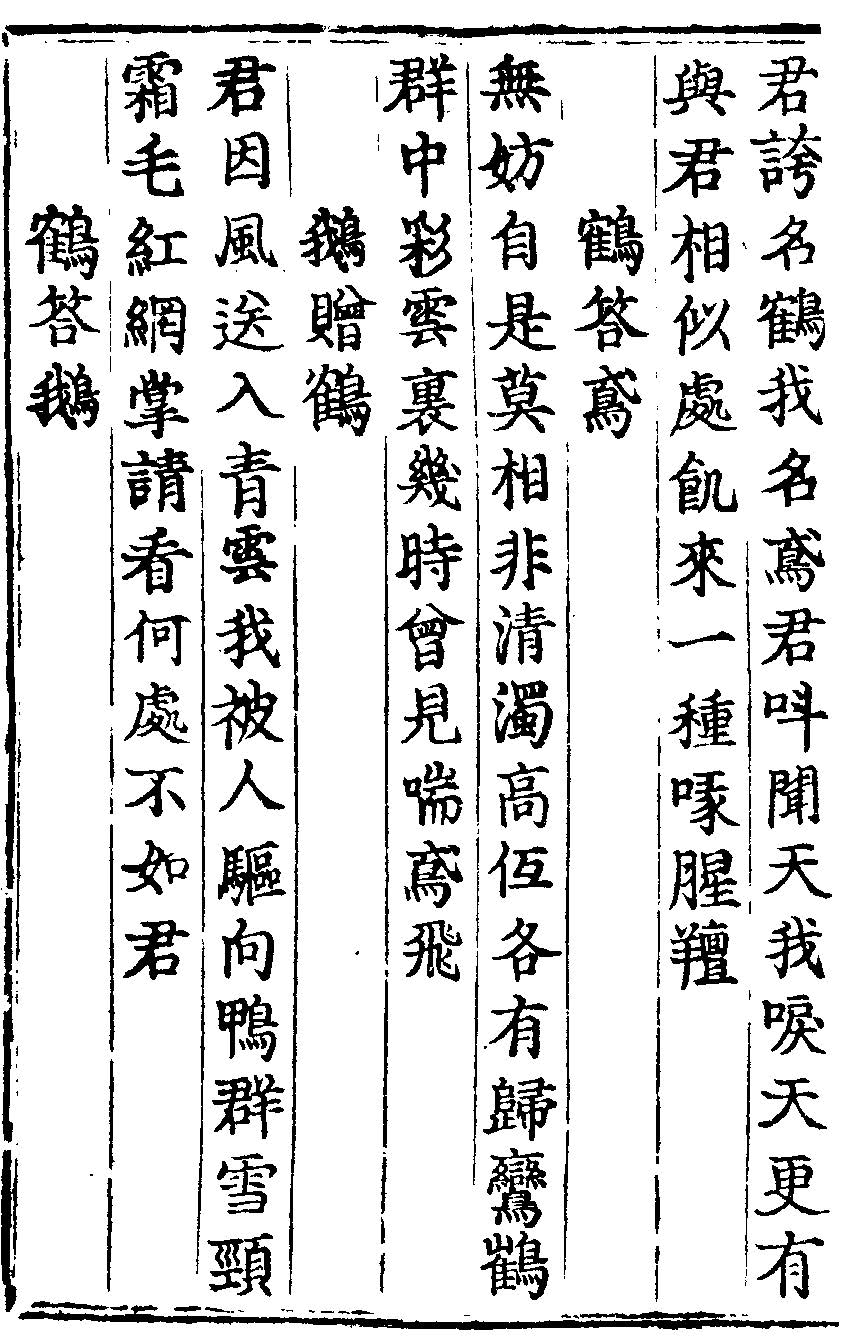 君誇名鶴我名鳶君呌聞天我唳天更有
與君相似處飢來一種啄腥羶
鶴答鳶
無妨自是莫相非清濁高低各有歸鸞鶴
群中彩雲裏幾時曾見喘鳶飛
鵝贈鶴
君因風送入青雲我被人驅向鴨群雪頸
霜毛紅網掌請看何處不如君
鶴答鵝